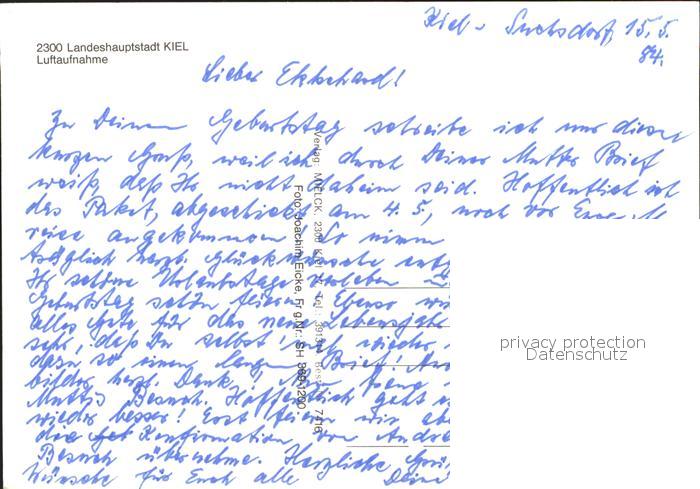 2300 Landeshauptstadt KIEL
Luftaufnahme
Kiel - Suchsdorf, 15.5.
84.
Lieber Ekkehard!
Zu Deinem Geburtstag schreibe ich nur diesen
kurzen Gruß, weil ich durch Deiner Mutter Brief
weiß, daß Ihr nicht daheim seid. Hoffentlich ist
das Paket, abgeschickt am 4.5., noch vor
reise angekommen. So nimm
herzl. Glückwünsche
Ihr schöne Urlaubstage verleben
Geburtstag schön feiern. Ebenso
alles Gute für das neue Lebensjahr
sehr, daß Du selbst wieder
dazu so einen langen Brief!
bilder herzl. Dank!
Muttis Besuch. Hoffentlich geht
wieder besser! Erst feiern wir
die Konfirmation von
Besuch übernehme. Herzliche
Wünsche für Euch alle Deine
Verlag: MOELCK, 2300 Kiel
Foto: Joachim Eicke, Frg.Nr.: SH
privacy protection
Datenschutz